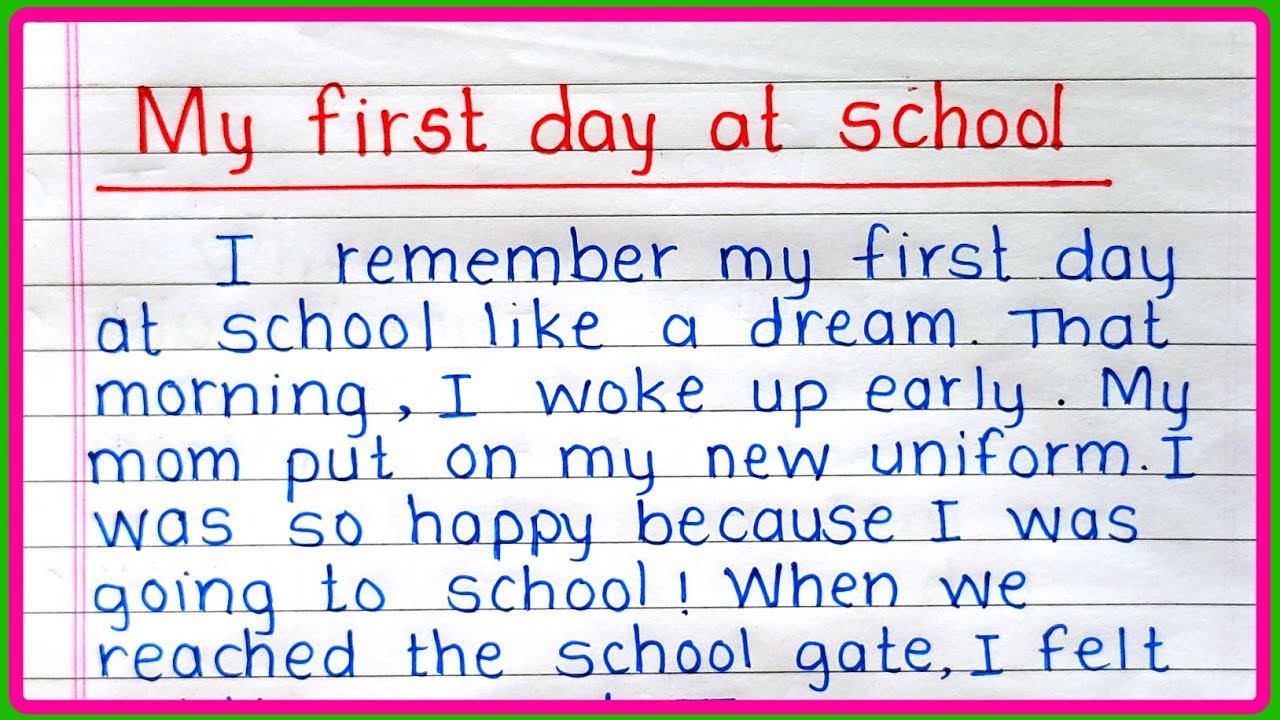 My first day at school
I remember my first day
at school like a dream. That
morning, I woke up early. My
mom put on my new uniform. I
was so happy because I was
going to school! When we
reached the school gate, I felt